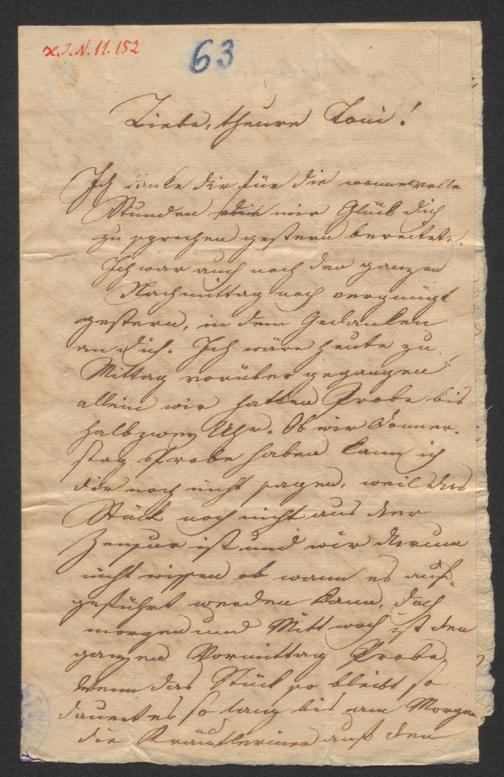 I.N. 11.152
63
Liebe, theure Toni!
Ich danke dir für die wonnevolle
Stunden die mir Glück dich
zu sprechen gestern bereitete.
Ich war auch noch den ganzen
Nachmittag noch vergnügt
gestern, in dem Gedanken
an dich. Ich wäre heute zu
Mittag vorüber gegangen
allein wir hatten Probe bis
halbzwey Uhr. Ob wir Donner-
stag Probe haben kann ich
dir noch nicht sagen, weil das
Stück noch nicht aus der
Zensur ist und wir darum
nicht wissen ob wann es auf-
geführt werden kann, doch
morgen und Mittwoch ist den
ganzen Vormittag Probe,
wenn das Stück so bleibt so
dauert es so lang bis am Morgen
die Kräutlerinen auf den